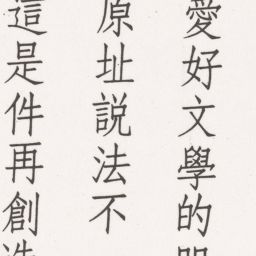 愛好文學的
原址説法不
這是件再創造